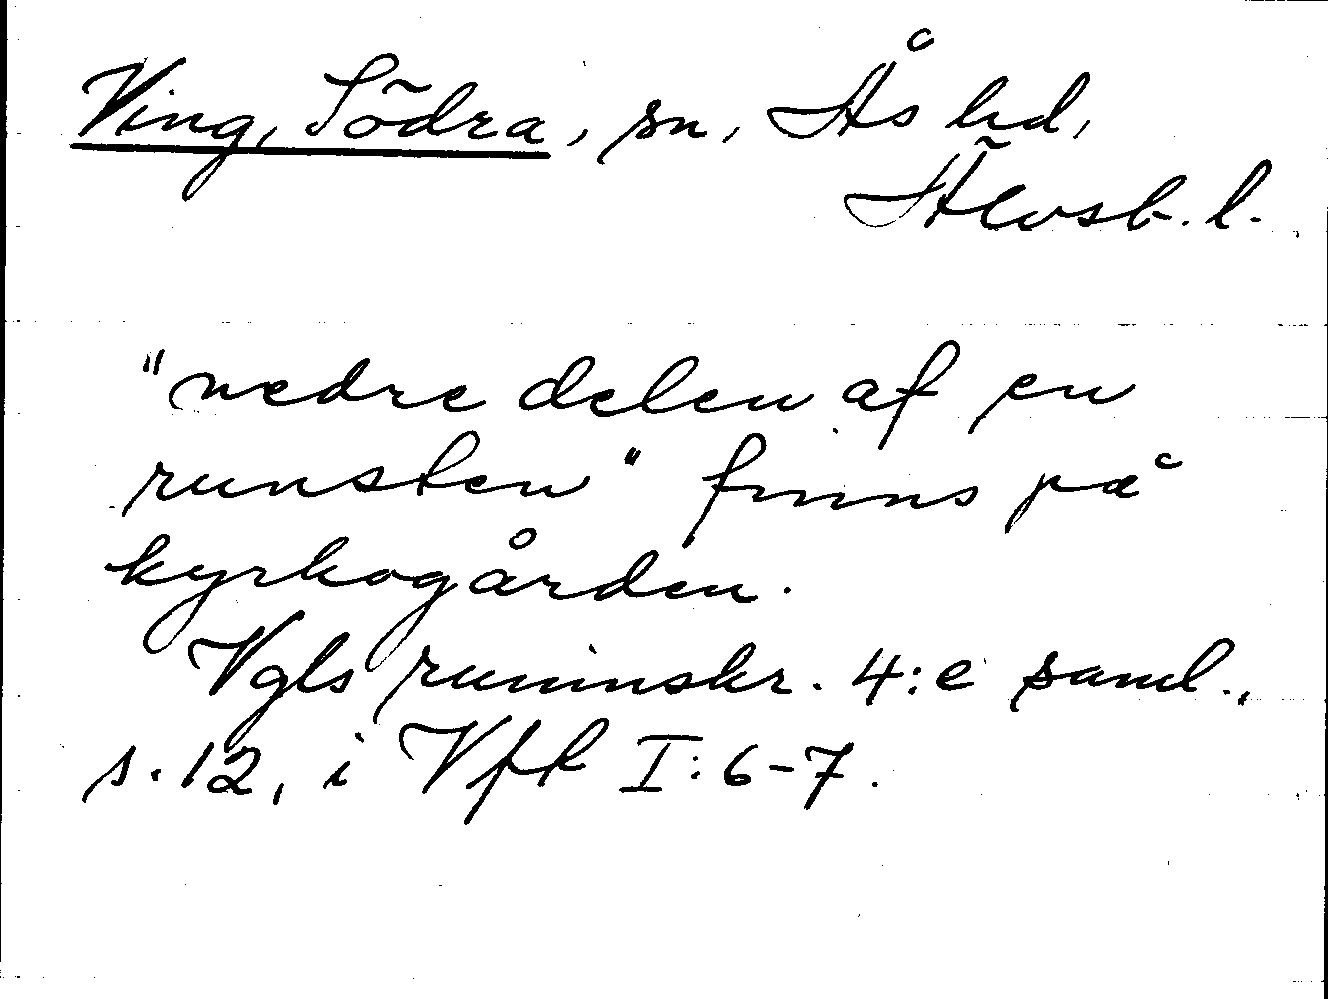 Ving, Södra, sn, Ås hd,
Älvsb. l.
"nedre delen af en
runsten" finns på
kyrkogården.
Vgls runinskr. 4:e saml.,
s. 12, i Vft I: 6-7.